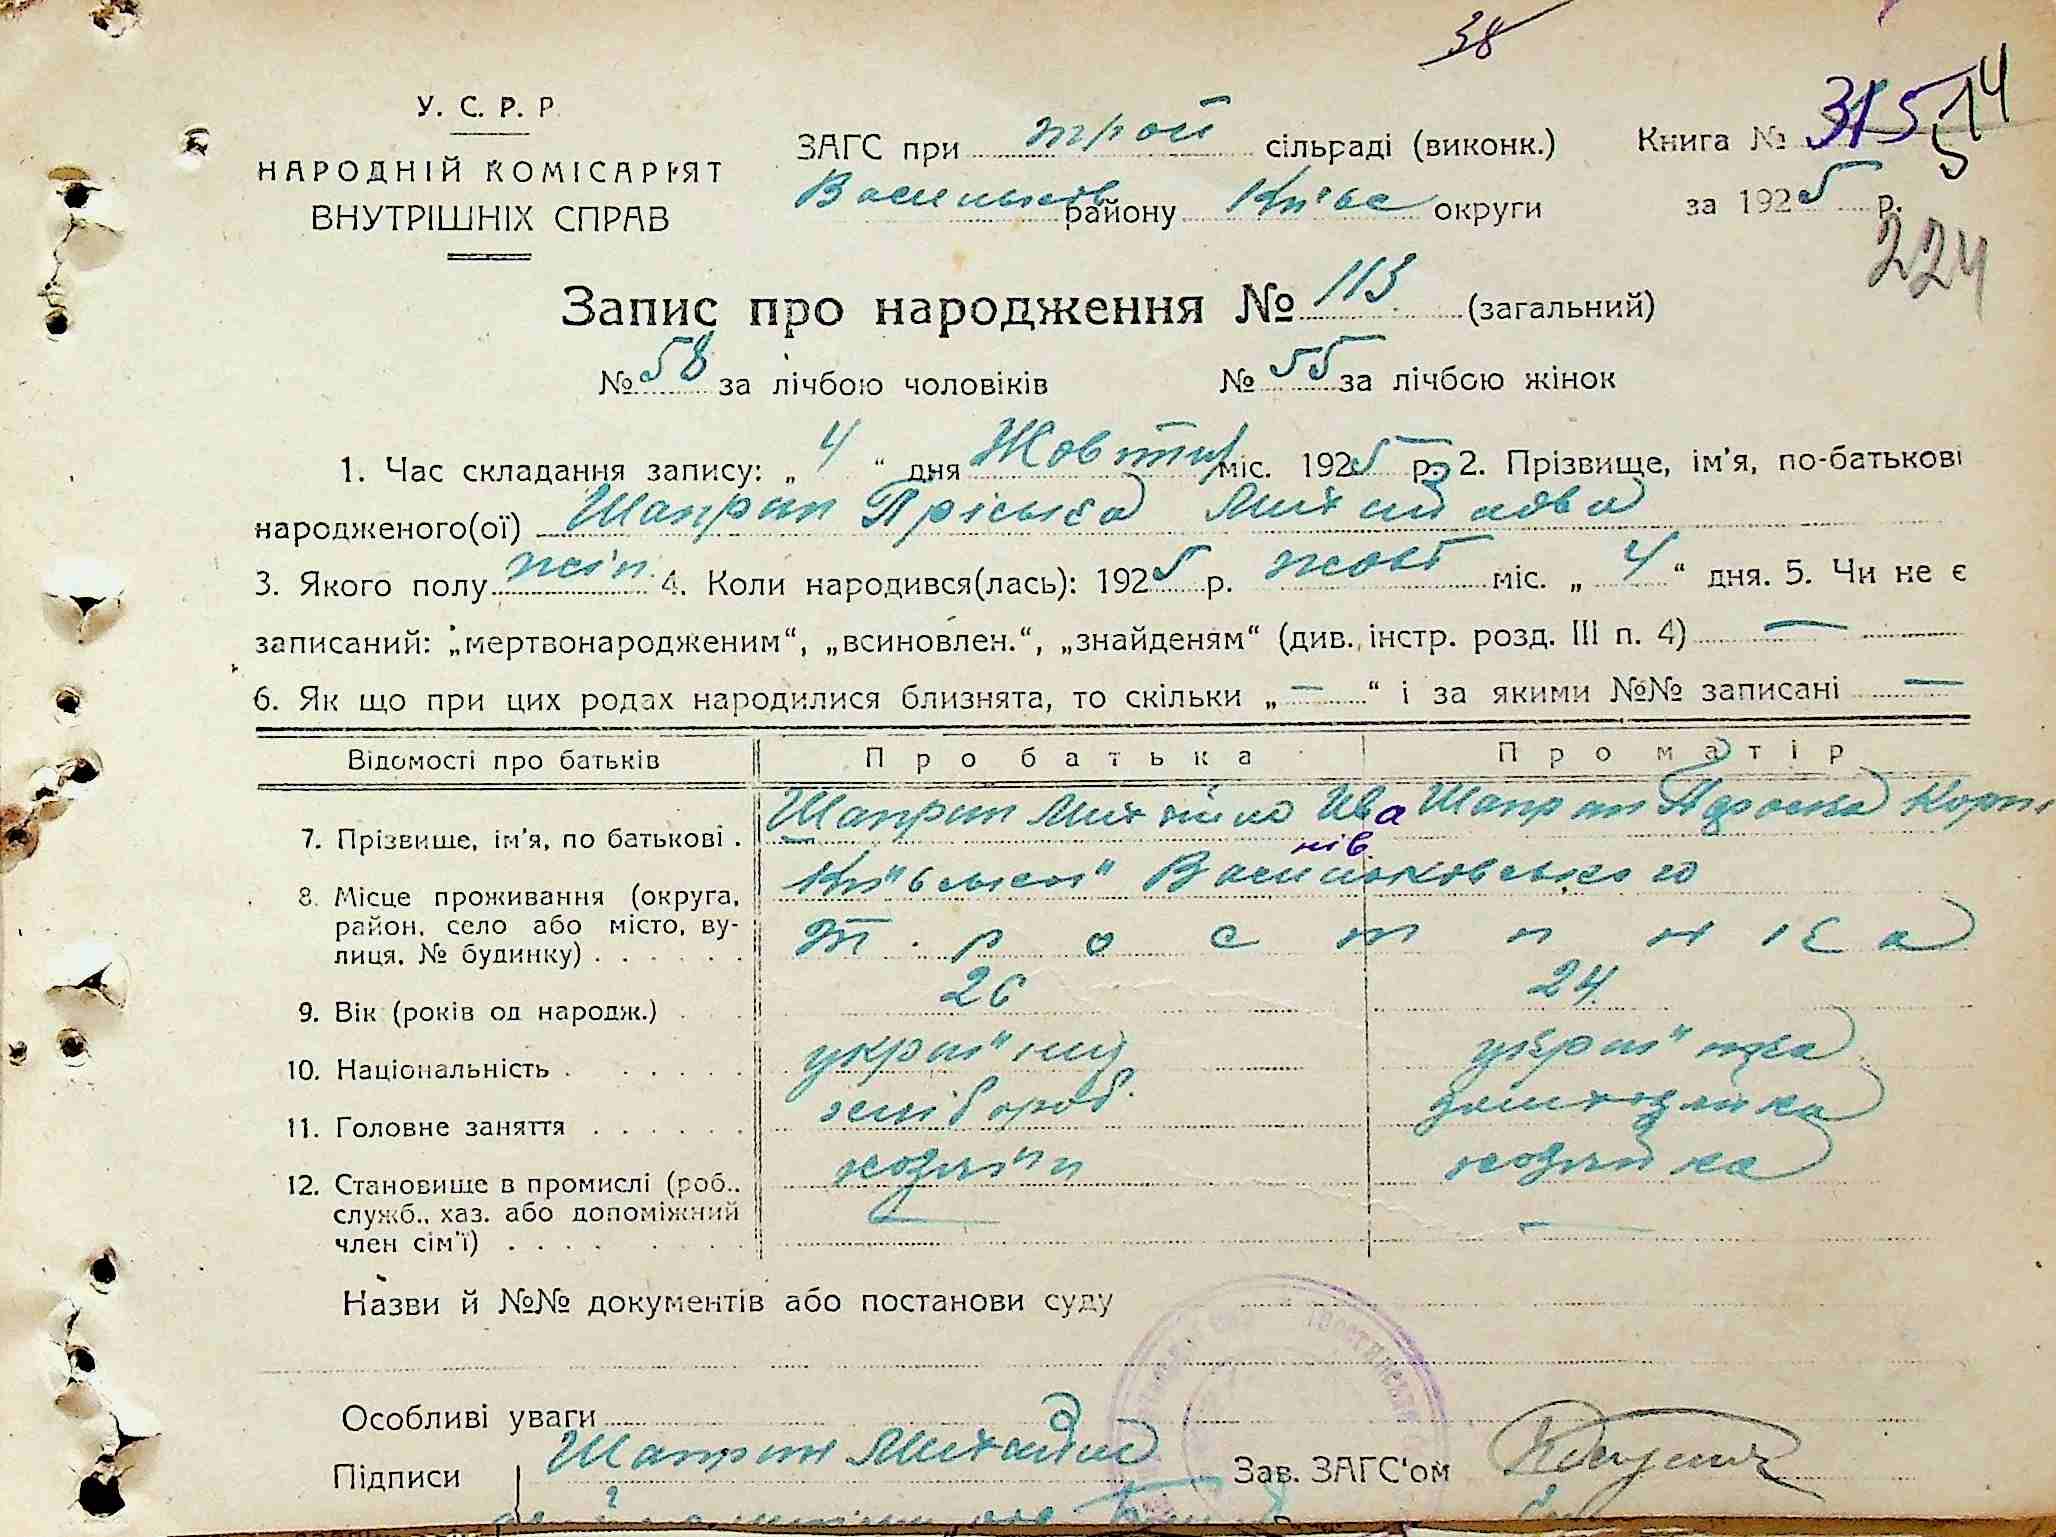 38
У. С. Р. Р.
НАРОДНІЙ КОМІСАРІЯТ
ВНУТРІШНІХ СПРАВ
ЗАГС при трос сільраді (виконк.) Книга № 315 514
Васильків району Київс округи за 1925 р.
224
Запис про народження № 113 (загальний)
№ 58 за лічбою чоловіків № 55 за лічбою жінок
1. Час складання запису: „ 4 “ дня Жовтня міс. 1925 р. 2. Прізвище, ім’я, по-батькові
народженого(ої) Шапран Пріська Михайлова
3. Якого полу жін. 4. Коли народився(лась): 1925 р. жовт міс. „ 4 “ дня. 5. Чи не є
записаний: „мертвонародженим“, „всиновлен.“, „знайденям“ (див. інстр. розд. III п. 4) —
6. Як що при цих родах народилися близнята, то скільки „ — “ і за якими №№ записані —
Відомості про батьків Про батька Про матір
7. Прізвище, ім’я, по батькові . Шапран Михайло Іванів Шапран Корн
8. Місце проживання (округа, Київськой Васильковського
район, село або місто, ву- Тростинка
лиця, № будинку) . . . . . .
9. Вік (років од народж.) . . . 26 24
10. Національність . . . . . . україниц українка
11. Головне заняття . . . . . . хлібороб. домхозяйка
12. Становище в промислі (роб., хозяїн хозяйка
служб., хаз. або допоміжний — —
член сім’ї) . . . .
Назви й №№ документів або постанови суду
Особливі уваги
Підписи Шапран Михайло Зав. ЗАГС‘ом